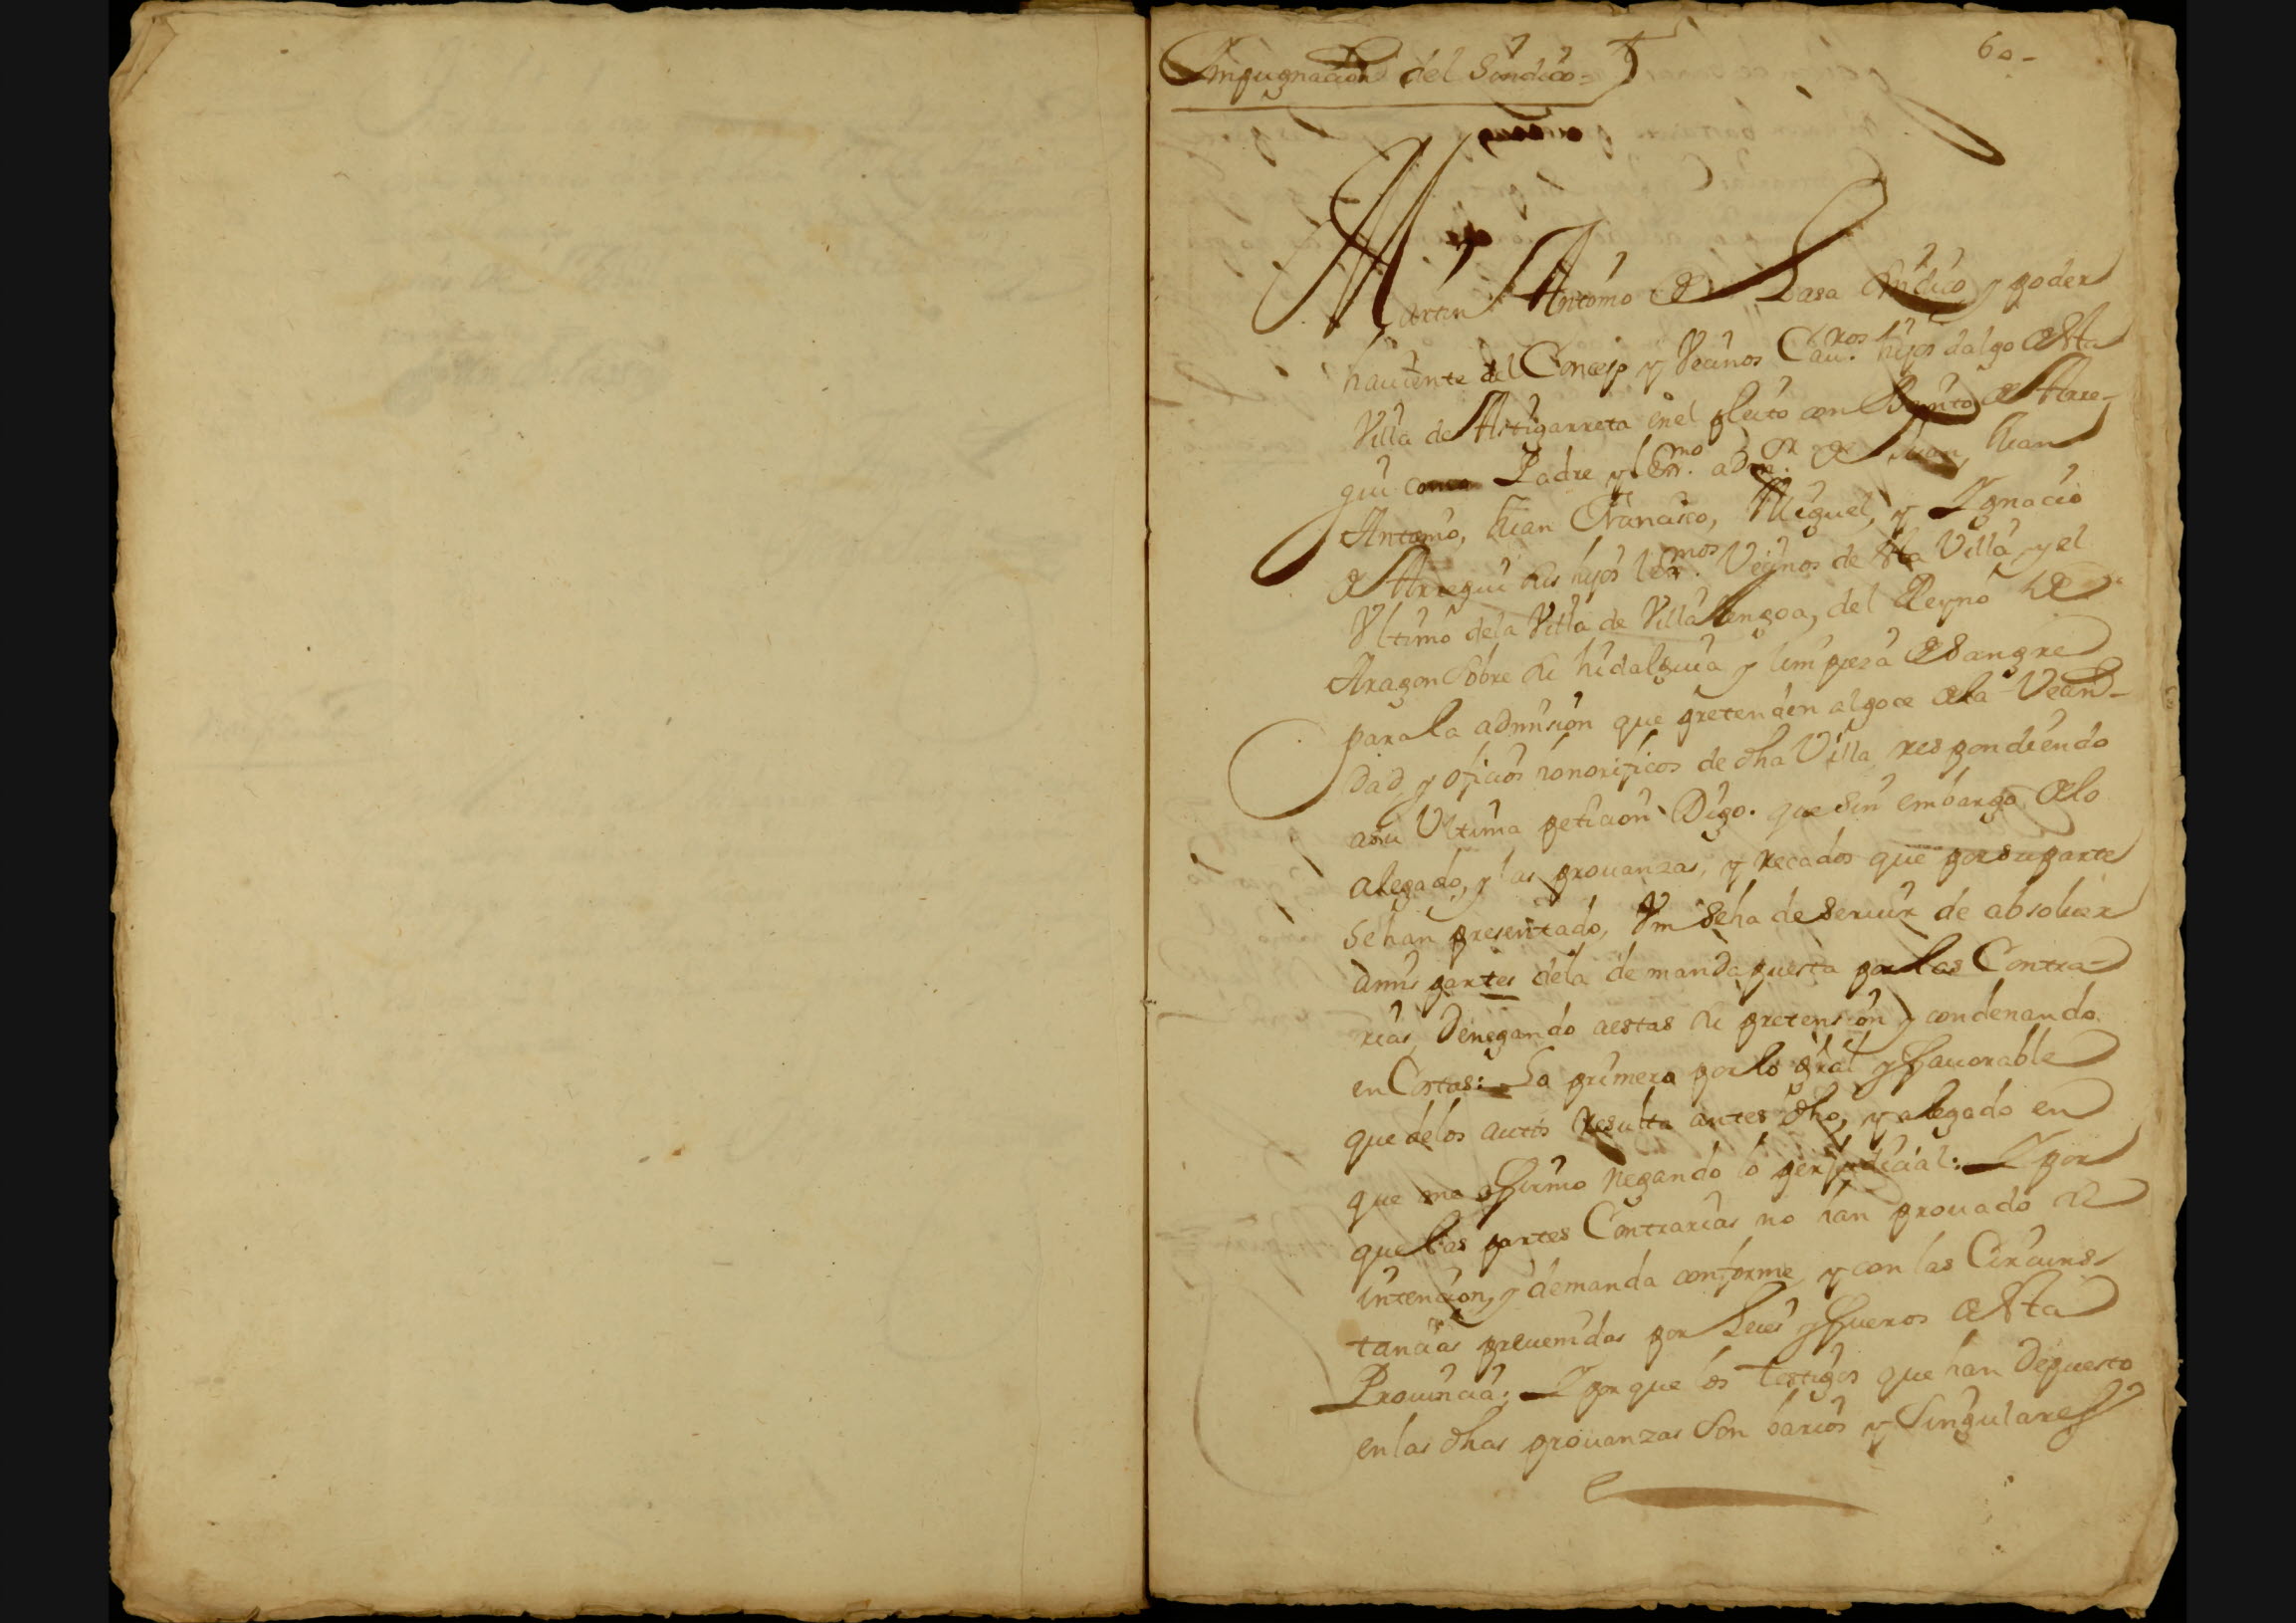 60-
Impugnacion del Sindico-
Martin Antonio de Lasa Sindico y poder
hauiente del Concejo y Vecinos Cau.ros hijos dalgo desta
Villa de Astigarreta enel pleito con Benito de Arre-
gui como Padre y lexmo. admor. de Juan, Juan
Antonio, Juan Francisco, Miguel, y Ygnacio
de Arregui sus hijos lexmos. Vecinos de esta Villa, y el
Vltimo dela Villa de Villa luengoa, del Reyno de
Aragon sobre su hidalguia y limpieza de sangre
para la admision que pretenden algoce dela Vecin-
dad, y oficios honorificos de dha Villa, respondiendo
asu Vltima peticion Digo. que sin embargo delo
alegado, y las prouanzas, y recados que por su parte
se han presentado, Vm se ha de seruir de absoluer
amis partes dela demanda puesta por las Contra-
rias, denegando aestas su pretension y condenando
en Costas: Lo primero por lo gral y fauorable
que delos autos resulta antes dho, y alegado en
que me afirmo negando lo perjudicial: Y por
que las partes Contrarias no han prouado su
intencion, y demanda conforme, y con las Circuns-
tancias preuenidas por Leies y fueros desta
Prouincia: Y por que los Testigos que han depuesto
en las dhas prouanzas son barios y Singulares